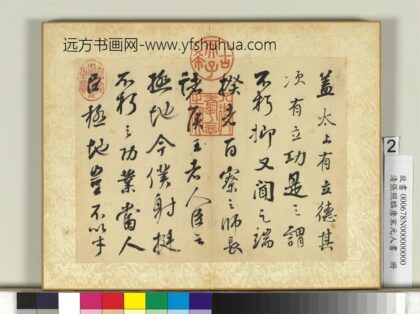 远方书画网-www.yfshuhua.com
蓋太上有立德其
次有立功是之謂
不朽抑又聞之端
揆者百寮之師長
諸侯王者人臣之
極地今僕射挺
不朽之功業當人
臣極地豈不以才
古希天子
2
故書 000678N000000000
清張照臨唐宋元人書 冊